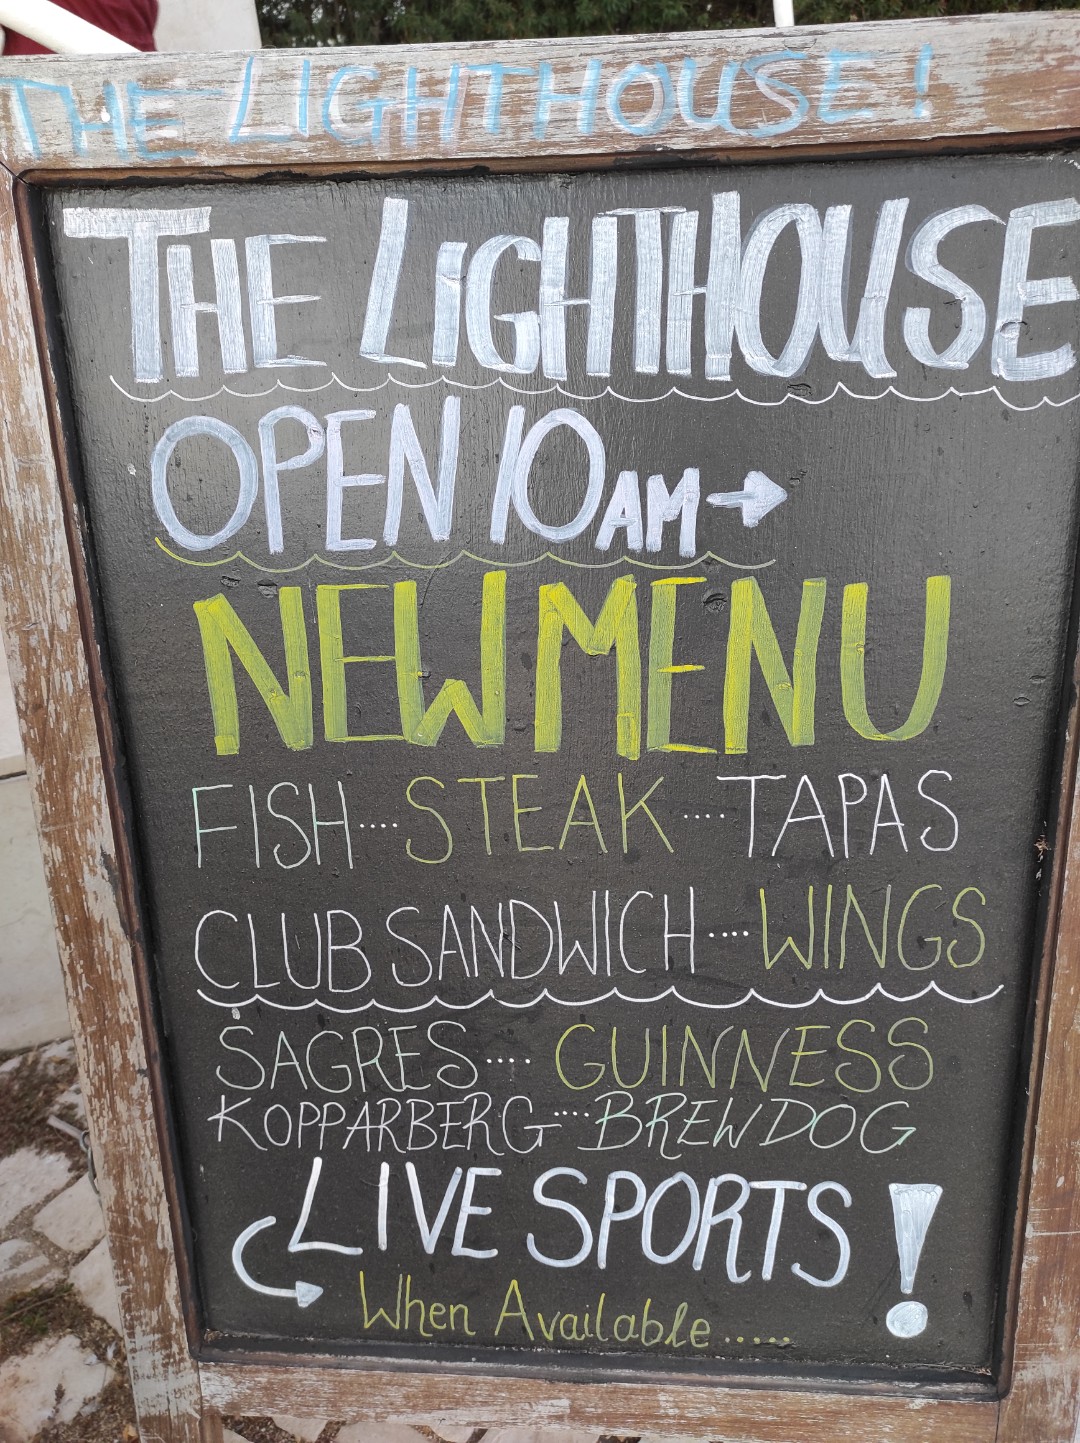 THE LIGHTHOUSE!
THE LiGHTHOUSE
OPEN 10AM →
NEW MENU
FISH .... STEAK .... TAPAS
CLUB SANDWICH .... WINGS
SAGRES .... GUINNESS
KOPPARBERG .... BREWDOG
LIVE SPORTS!
When Available......